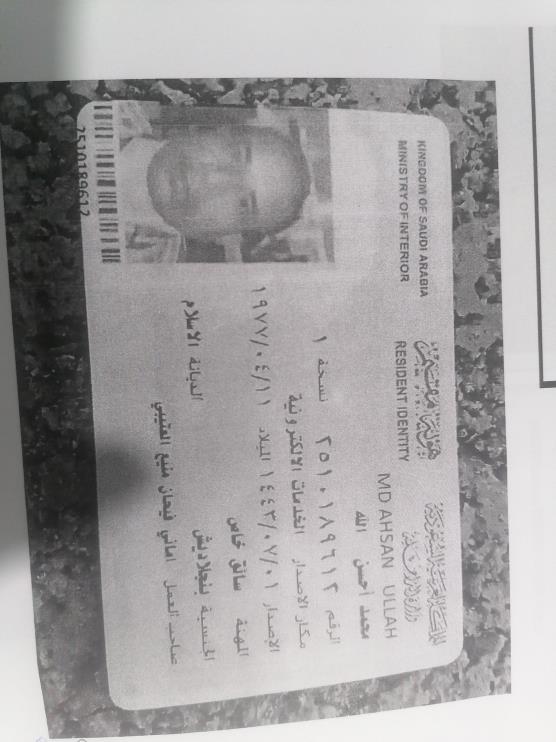 المملكة العربية السعودية
وزارة الداخلية
هوية مقيم
KINGDOM OF SAUDI ARABIA
MINISTRY OF INTERIOR
RESIDENT IDENTITY
MD AHSAN ULLAH
محمد احسن الله
الرقم ٢٥١٠١٨٩٦١٢ نسخة ١
مكان الاصدار الخدمات الالكترونية
الإصدار ١٤٤٣/٠٧/٠١ الميلاد ١٩٧٧/٠٤/١١
المهنة سائق خاص
الجنسية بنجلاديش الديانة الاسلام
صاحب العمل اماني فيحان منيع العتيبي
2510189612